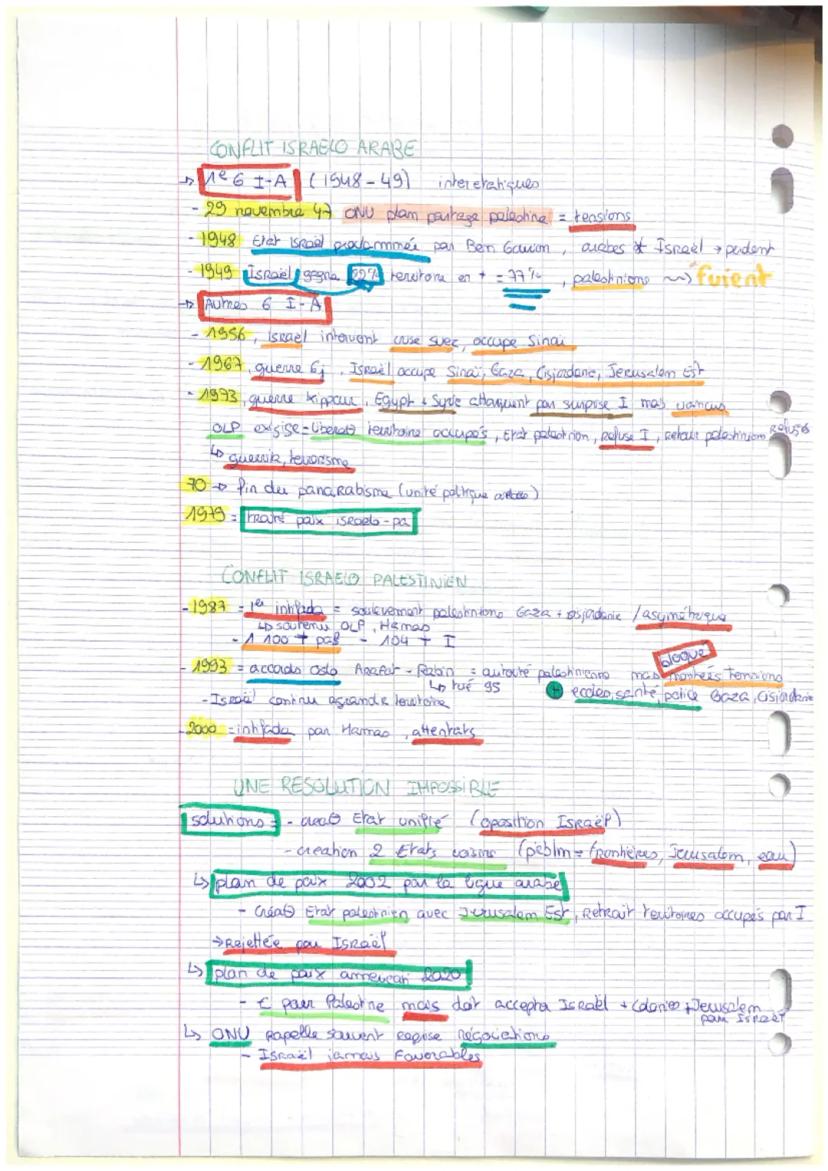 CONFLIT ISRAELO ARABE
→ 1e G I-A (1948-49) interetatiques
- 29 novembre 47 ONU plan partage palestine = tensions
- 1948 Etat Israël proclammée par Ben Gourion, arabes * Israël → perdent
- 1949 Israël gagne 22% territoire en + = 77%, palestiniens ~> fuient
→ Autres G I-A
- 1956, Israël intervient crise suez, occupe Sinaï
- 1967, guerre 6j, Israël occupe Sinaï, Gaza, Cisjordanie, Jerusalem Est
- 1973, guerre kippour, Egypt + Syrie attaquent par surprise I mais vaincus
OLP exsige = liberat° territoire occupés, Etat palestinien, refuse I, retour palestiniens Refugés
↳ guerrilla, terrorisme
70 → fin du panarabisme (unité politique arabe)
1979 = traité paix israelo-pa
CONFLIT ISRAELO PALESTINIEN
- 1987 = 1er intifada = soulevement palestiniens Gaza + cisjordanie / asymétrique
↳ soutenu OLP, Hamas
- 1 100 † pal - 104 † I
bloqué
- 1993 = accords oslo Arafat - Rabin = autorité palestinienne mais montées tensions
↳ tué 95 + ecoles, santé, police Gaza, Cisjordanie
- Israël continu agrandir territoire
- 2000 = intifada par Hamas, attentats
UNE RESOLUTION IMPOSSIBLE
solutions = - creat° Etat unifié (oposition Israël)
- creation 2 Etats voisins (pblm = frontières, Jerusalem, eau)
↳ plan de paix 2002 par la ligue arabe
- Créat° Etat palestinien avec Jerusalem Est, Retrait territoires occupés par I
→ Rejettée par Israël
↳ plan de paix americain 2020
- € pour Palestine mais doit accepter Israël + colonies + Jerusalem
pour Israël
↳ ONU rapelle souvent reprise négociations
- Israël jamais Favorables